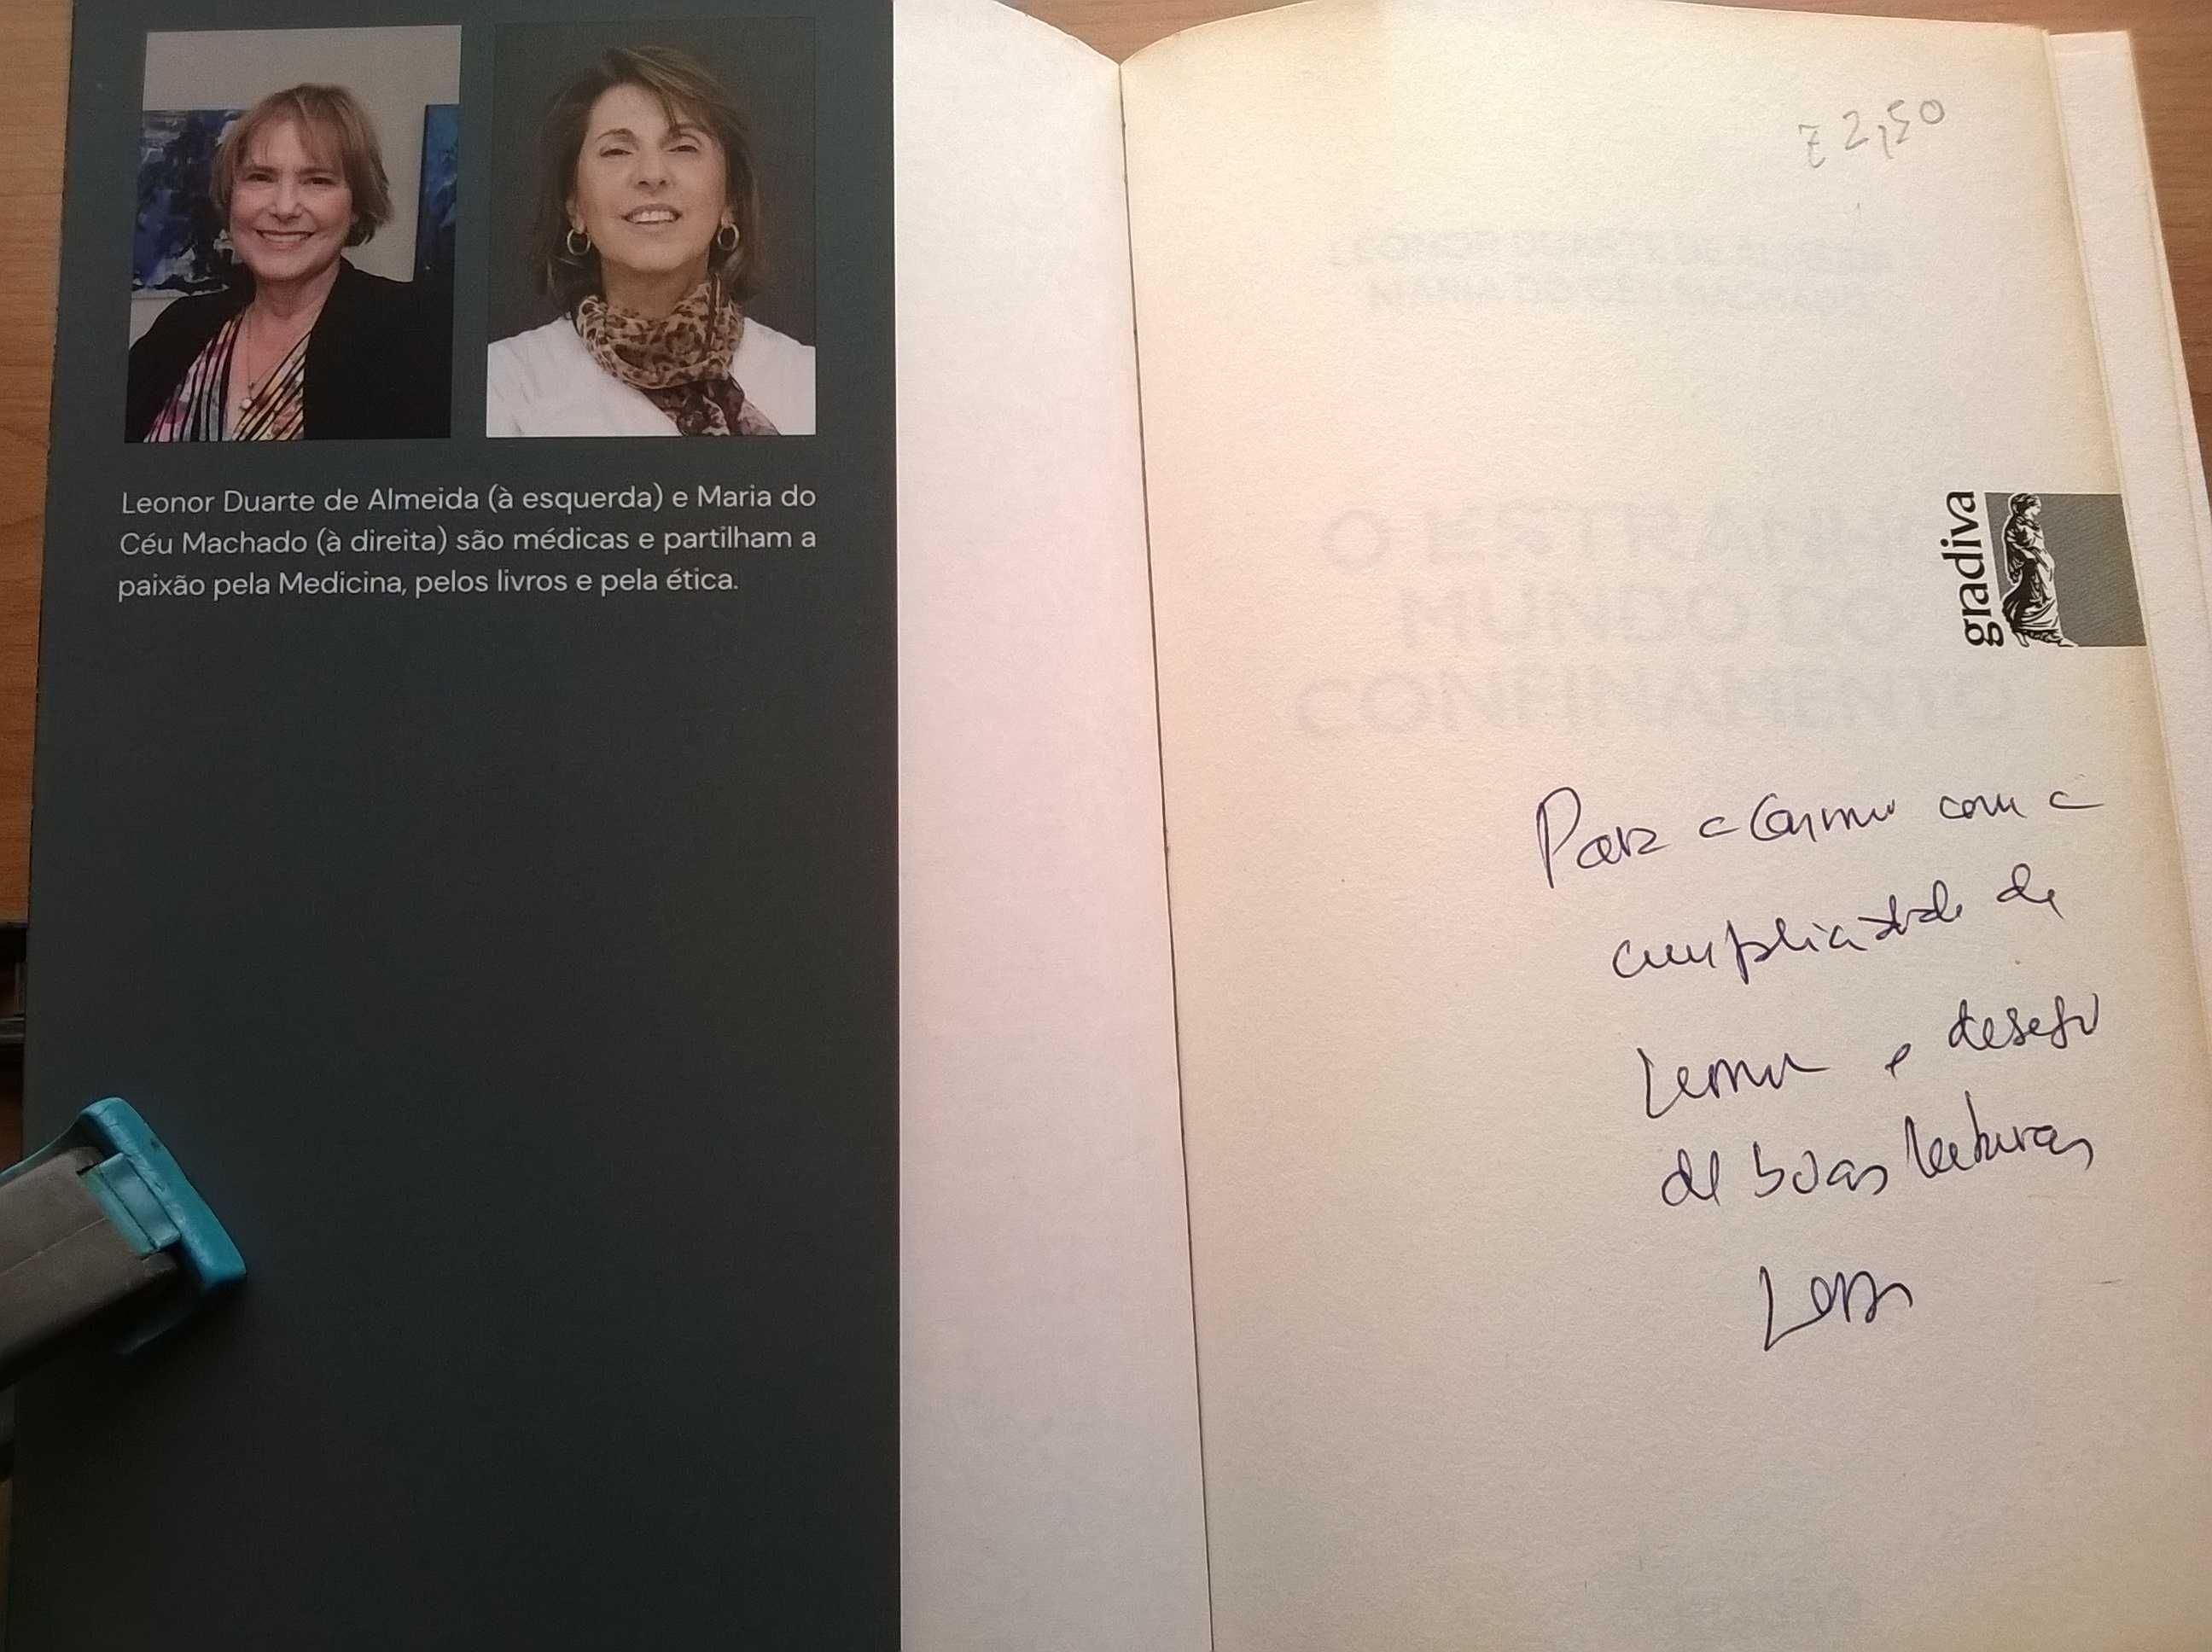 Leonor Duarte de Almeida (à esquerda) e Maria do
Céu Machado (à direita) são médicas e partilham a
paixão pela Medicina, pelos livros e pela ética.
€ 2,50
LEONOR DUARTE DE ALMEIDA
MARIA DO CÉU MACHADO
O ESTRANHO
MUNDO DO
CONFINAMENTO
gradiva
Para a Carmo com a
cumplicidade da
Leonor e desejo
de boas leituras
Leonor